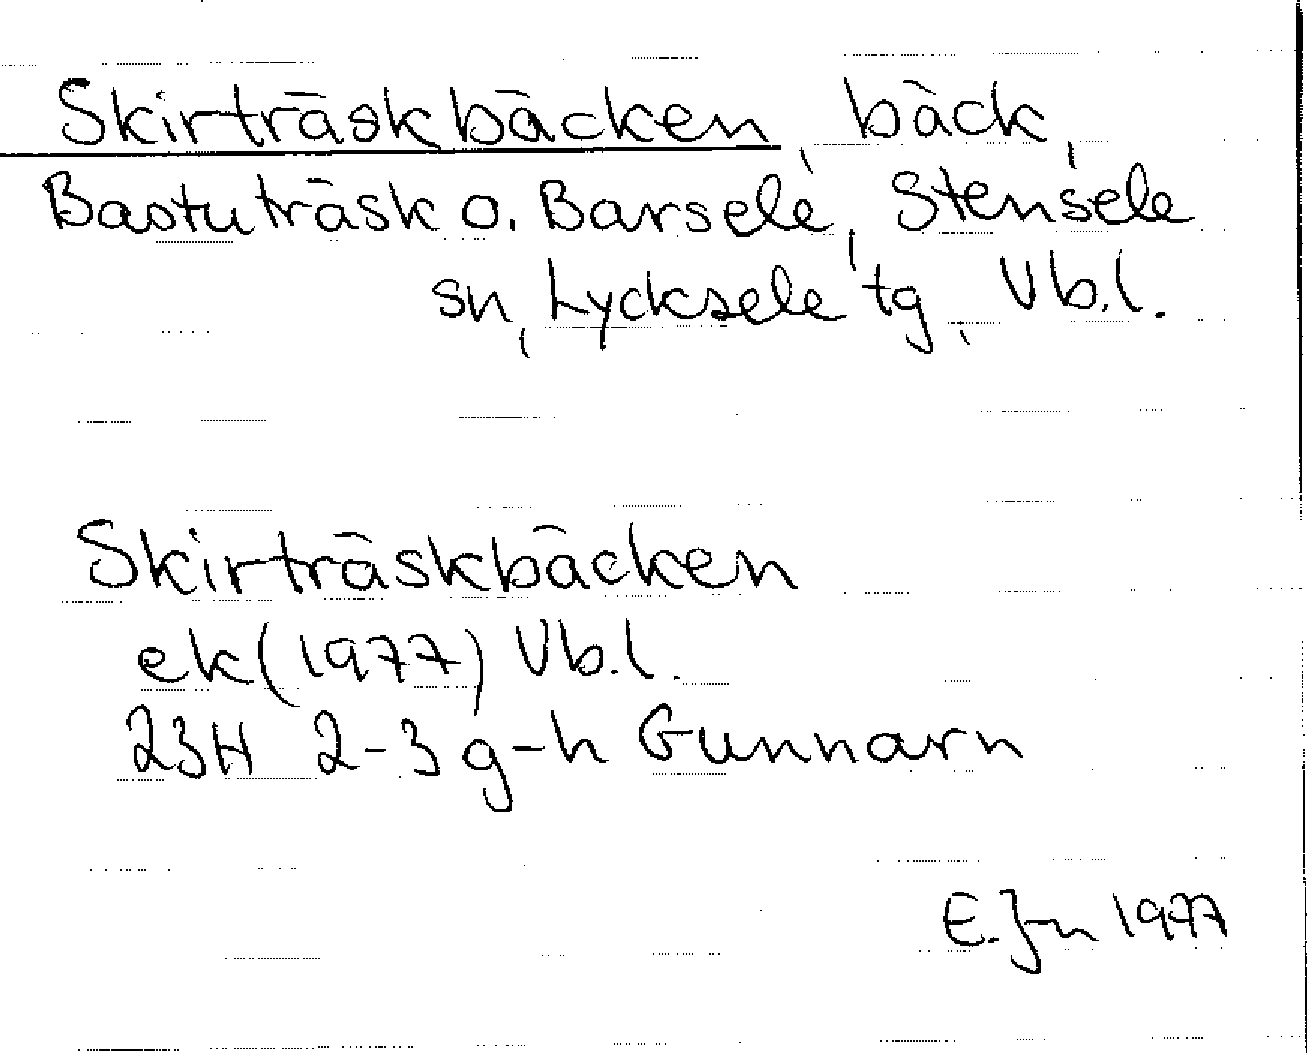 Skirträskbäcken, bäck,
Bastuträsk o. Barsele, Stensele
sn, Lycksele tg, Vb.l.
Skirträskbäcken
ek (1977) Vb.l.
23H 2-3 g-h Gunnarn
E. Jn 1977